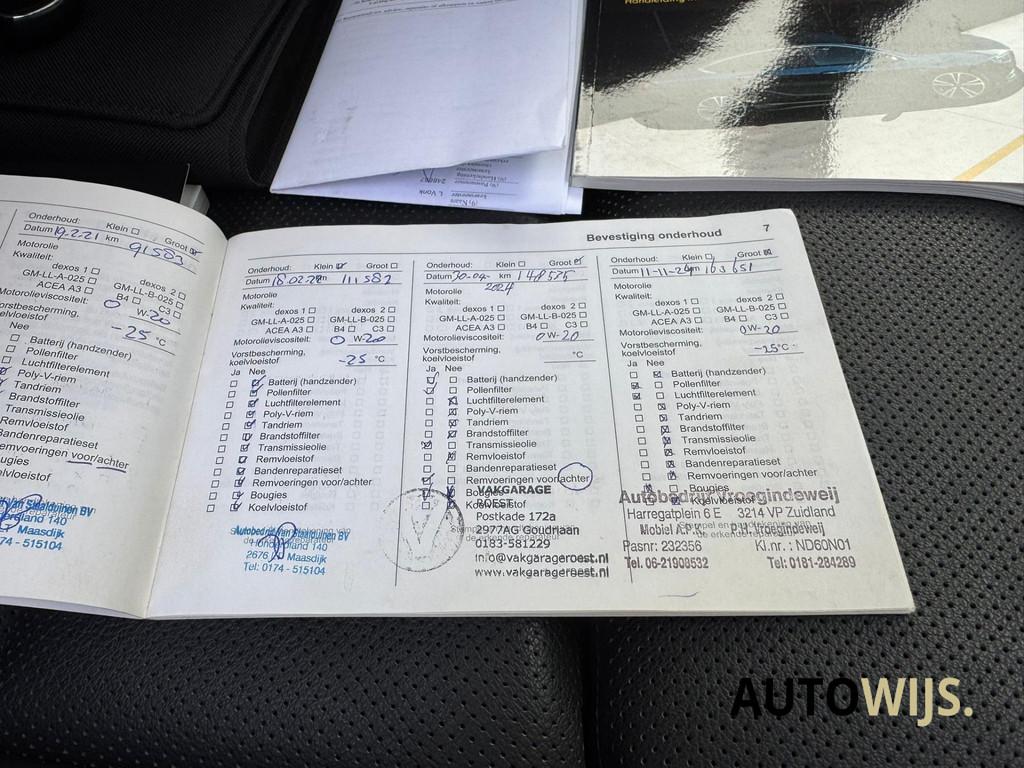 Handleiding
I. Vonk
Onderhoud: Klein Groot
Datum 19.2.21 km 91583
Motorolie
Kwaliteit:
dexos 1 dexos 2
GM-LL-A-025 GM-LL-B-025
ACEA A3 B4 C3
Motorolieviscositeit: 0 W-20
Vorstbescherming,
koelvloeistof -25 °C
Nee
Batterij (handzender)
Pollenfilter
Luchtfilterelement
Poly-V-riem
Tandriem
Brandstoffilter
Transmissieolie
Remvloeistof
Bandenreparatieset
Remvoeringen voor/achter
Bougies
Koelvloeistof
van Staalduinen BV
140
Maasdijk
74 - 515104
Bevestiging onderhoud 7
Onderhoud: Klein Groot
Datum 18.02.22 km 111582
Motorolie
Kwaliteit:
dexos 1 dexos 2
GM-LL-A-025 GM-LL-B-025
ACEA A3 B4 C3
Motorolieviscositeit: 0 W-20
Vorstbescherming,
koelvloeistof -25 °C
Ja Nee
Batterij (handzender)
Pollenfilter
Luchtfilterelement
Poly-V-riem
Tandriem
Brandstoffilter
Transmissieolie
Remvloeistof
Bandenreparatieset
Remvoeringen voor/achter
Bougies
Koelvloeistof
Autobedrijf Van Staalduinen BV
140
2676 Maasdijk
Tel: 0174 - 515104
Onderhoud: Klein Groot
Datum 30-04- km 148575
2024
Motorolie
Kwaliteit:
dexos 1 dexos 2
GM-LL-A-025 GM-LL-B-025
ACEA A3 B4 C3
Motorolieviscositeit: 0W-20
Vorstbescherming,
koelvloeistof °C
Ja Nee
Batterij (handzender)
Pollenfilter
Luchtfilterelement
Poly-V-riem
Tandriem
Brandstoffilter
Transmissieolie
Remvloeistof
Bandenreparatieset
Remvoeringen voor/achter
Bougies
Koelvloeistof
VAKGARAGE
ROEST
Postkade 172a
2977AG Goudriaan
0183-581229
info@vakgarageroest.nl
www.vakgarageroest.nl
Onderhoud: Klein Groot
Datum 11-11-24 km 163651
Motorolie
Kwaliteit:
dexos 1 dexos 2
GM-LL-A-025 GM-LL-B-025
ACEA A3 B4 C3
Motorolieviscositeit: 0W-20
Vorstbescherming,
koelvloeistof -25°C
Ja Nee
Batterij (handzender)
Pollenfilter
Luchtfilterelement
Poly-V-riem
Tandriem
Brandstoffilter
Transmissieolie
Remvloeistof
Bandenreparatieset
Remvoeringen voor/achter
Bougies
Koelvloeistof
Autobedrijf Vroegindeweij
Harregatplein 6 E 3214 VP Zuidland
Mobiel A.P.K. P.H. Vroegindeweij
Pasnr: 232356 Kl.nr.: ND60N01
Tel. 06-21908532 Tel: 0181-284289
AUTOWIJS.